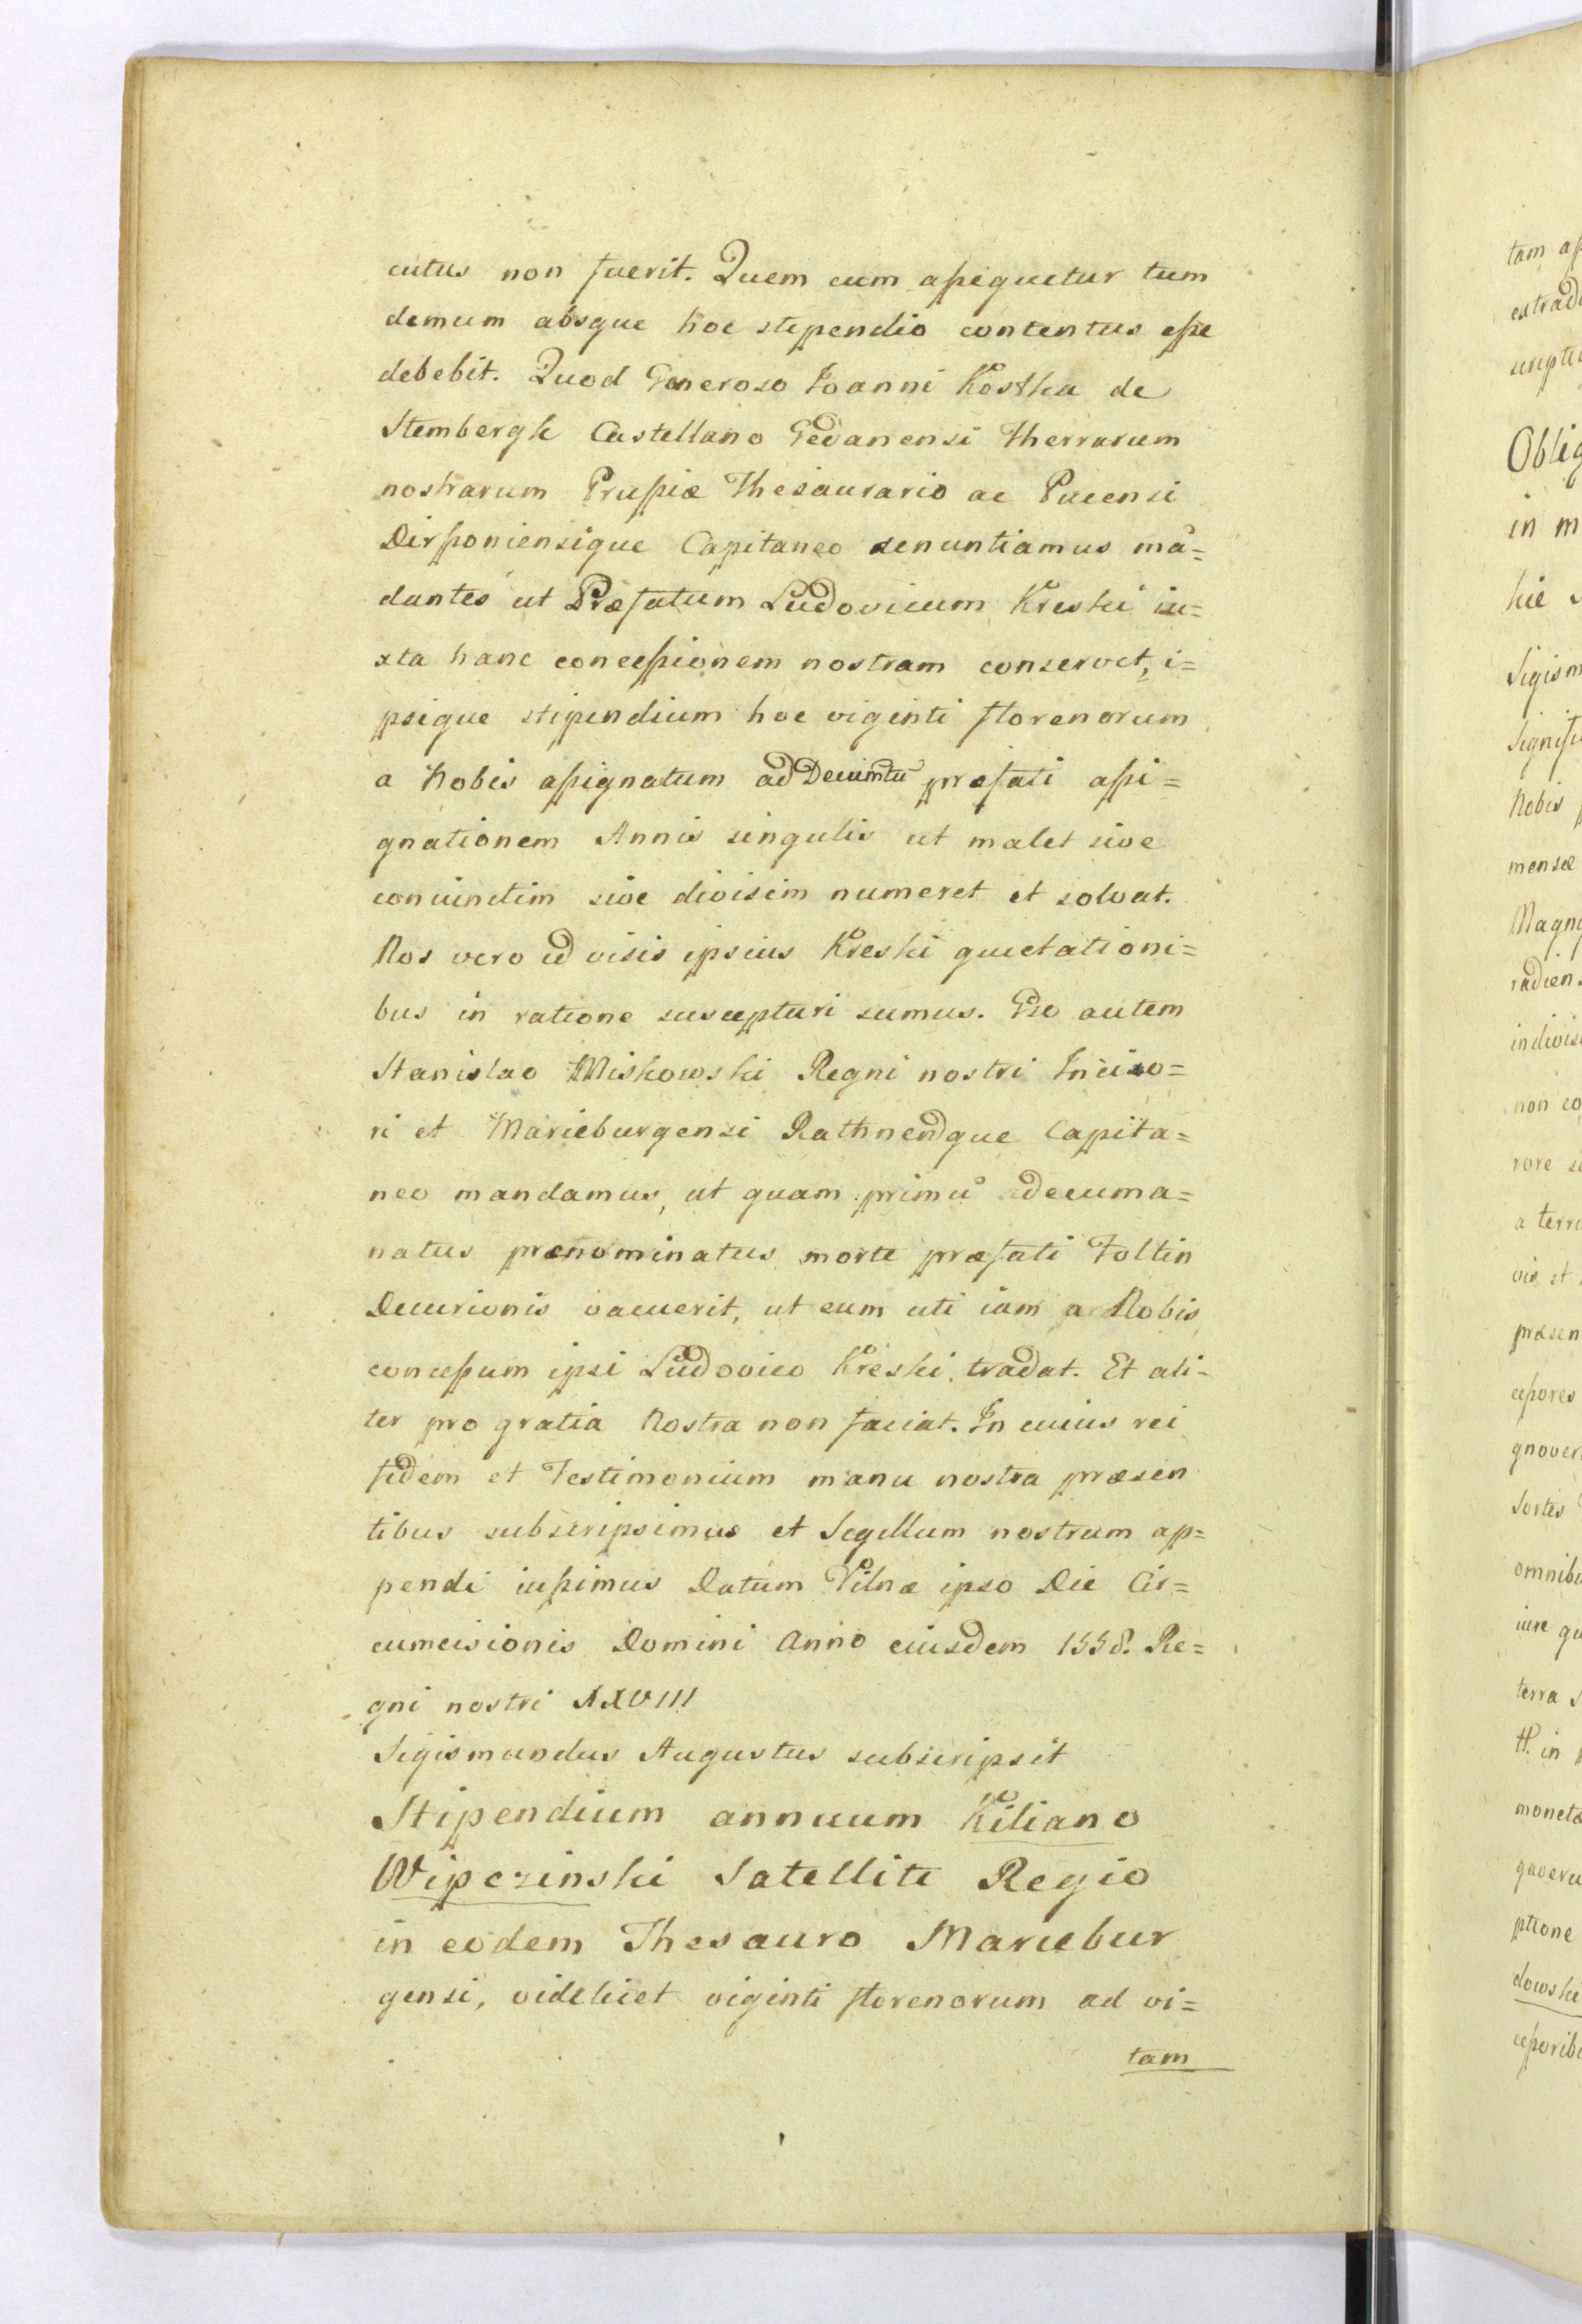 cutus non fuerit. Quem cum assequetur tum
demum absque hoc stependio contentus esse
debebit. Quod Generoso Ioanni Kostka de
Stembergk Castellano Gedanensi Therrarum
nostrarum Prussiæ Thesaurario ac Pucensi
Dirsponiensique Capitaneo denuntiamus mā=
dantes ut Præfatum Ludovicum Kreski iu=
xta hanc concessionem nostram conservet, i=
psique stipendium hoc viginti florenorum
a Nobis assignatum ad præfati assi=
gnationem Annis singulis ut malet sive
coniunctim sive divisim numeret et solvat.
Nos vero id visis ipsius Kreski quietationi=
bus in ratione suscepturi sumus. Gso autem
Stanislao Miskowski Regni nostri Inciso=
ri et Marieburgensi Rathnendque Capita=
neo mandamus, ut quam primū decuma=
natus prænominatus morte præfati Foltin
Decurionis vacuerit, ut eum uti iam a Nobis
concessum ipsi Ludovico Kreski tradat. Et ali=
ter pro gratia Nostra non faciat. In cuius rei
fidem et Testimonium manu nostra præsen
tibus subscripsimus et Segillum nostrum ap=
pendi iussimus Datum Vilnæ ipso Die Cir=
cumcisionis Domini Anno eiusdem 1558. Re=
gni nostri XXVIII
Sigismundus Augustus subscripsit
Stipendium annuum Kiliano
Wipczinski Satelliti Regio
in eodem Thesauro Mariebur
gensi, videlicet viginti florenorum ad vi=
tam
tam
Oblig
in m
hie
Sigism
Signifi
Nobis
mensæ
Magn
radien
indivis
non co
rore
a terr
vis et
præsen
cessores
gnover
Sortes
omnib
iure qu
terra
in
moneta
gaveru
ptione
dowski
cessorib